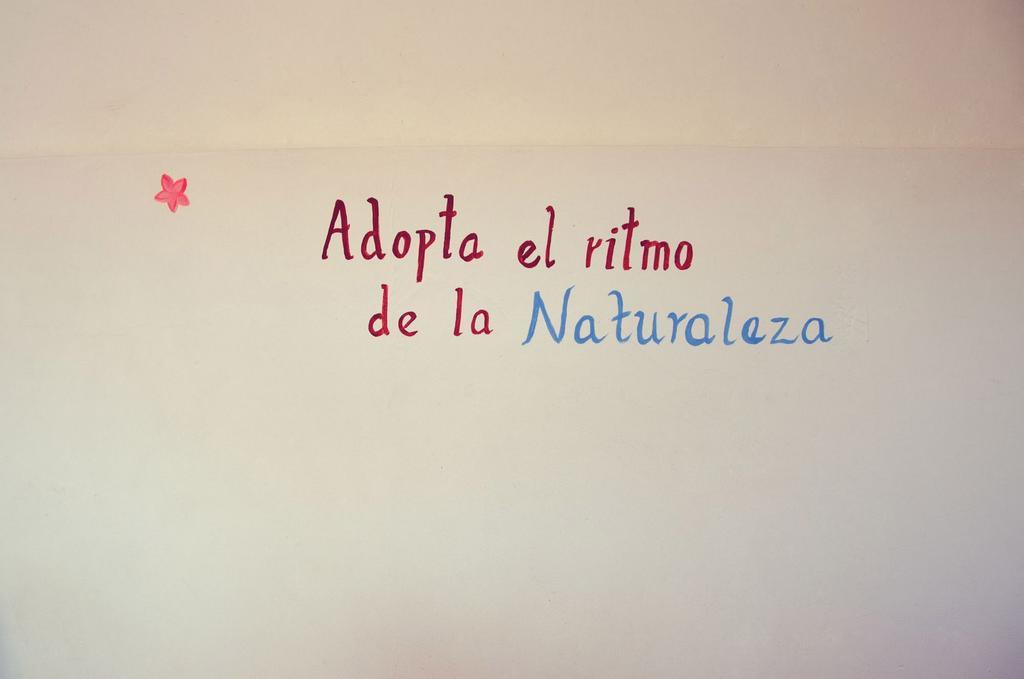 Adopta el ritmo
de la Naturaleza